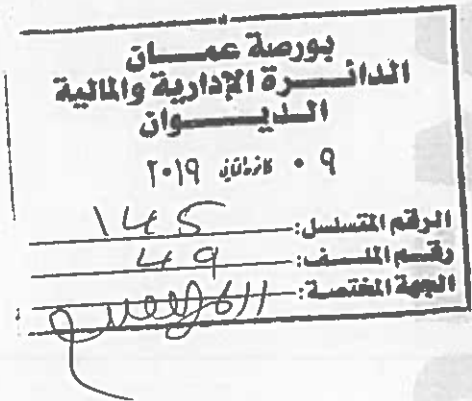 بورصة عمـــان
الدائـــرة الإدارية والمالية
الـديـــوان
٠٩ كانون ثاني ٢٠١٩
الرقم المتسلسل: ١٤٥
رقـم الملـف: ٤٩
الجهة المختصة: